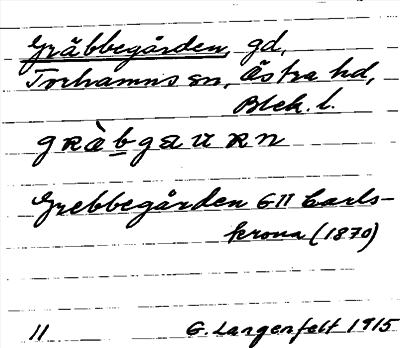 Gräbbegården, gd,
Torhamns sn, Östra hd,
Blek. l.
Grebbegården GII Carls-
krona (1870)
11 G. Langenfelt 1915